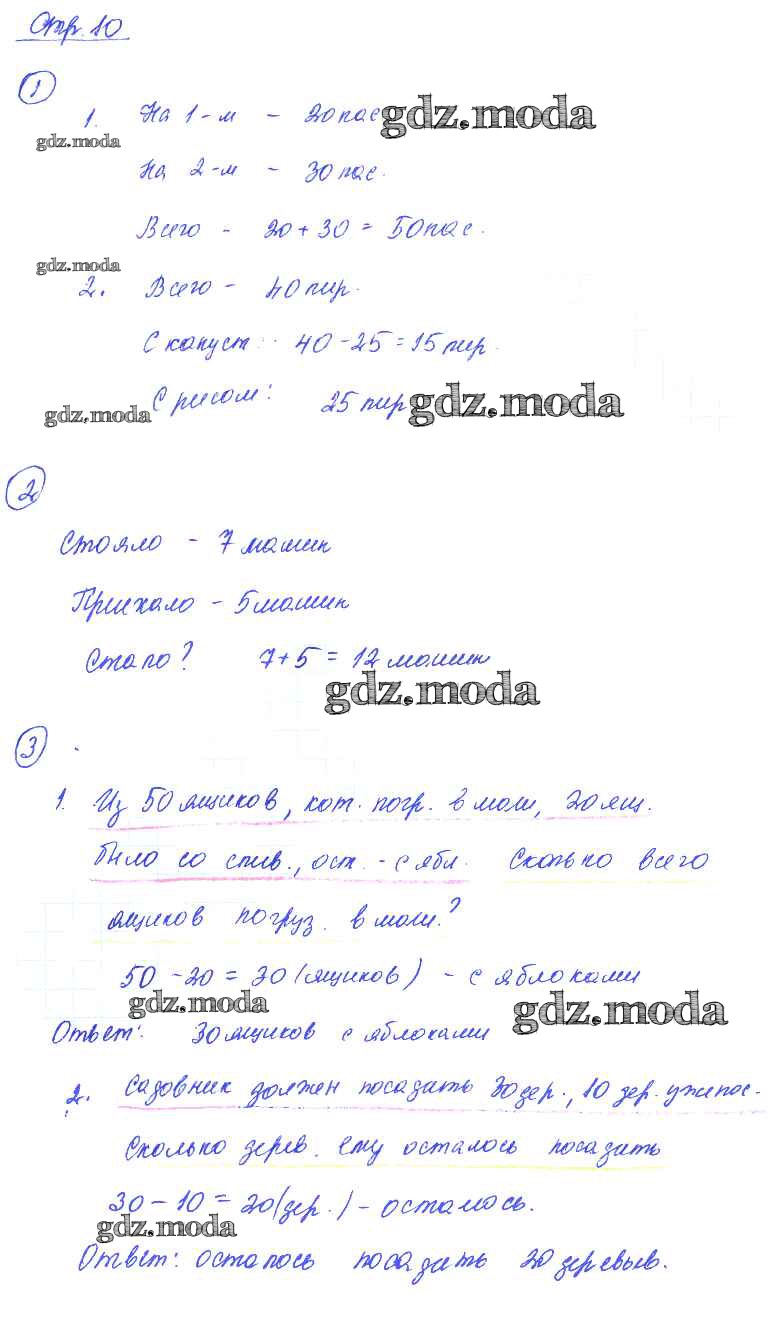 Стр. 10
1
1. На 1-м - 20 пас gdz.moda
gdz.moda
На 2-м - 30 пас.
Всего - 20 + 30 = 50 пас.
gdz.moda
2. Всего - 40 пир.
С капуст: 40 - 25 = 15 пир.
С рисом: 25 пир gdz.moda
gdz.moda
2
Стояло - 7 машин
Приехало - 5 машин
Стало? 7 + 5 = 12 машин
gdz.moda
3
1. Из 50 ящиков, кот. погр. в маш, 20 ящ.
было со слив., ост. - с ябл. Сколько всего
ящиков погруз. в маш.?
50 - 20 = 30 (ящиков) - с яблоками
gdz.moda gdz.moda
Ответ: 30 ящиков с яблоками
2. Садовник должен посадить 30 дер., 10 дер. уже пос.
Сколько дерев. ему осталось посадить
30 - 10 = 20 (дер.) - осталось.
gdz.moda
Ответ: осталось посадить 20 деревьев.